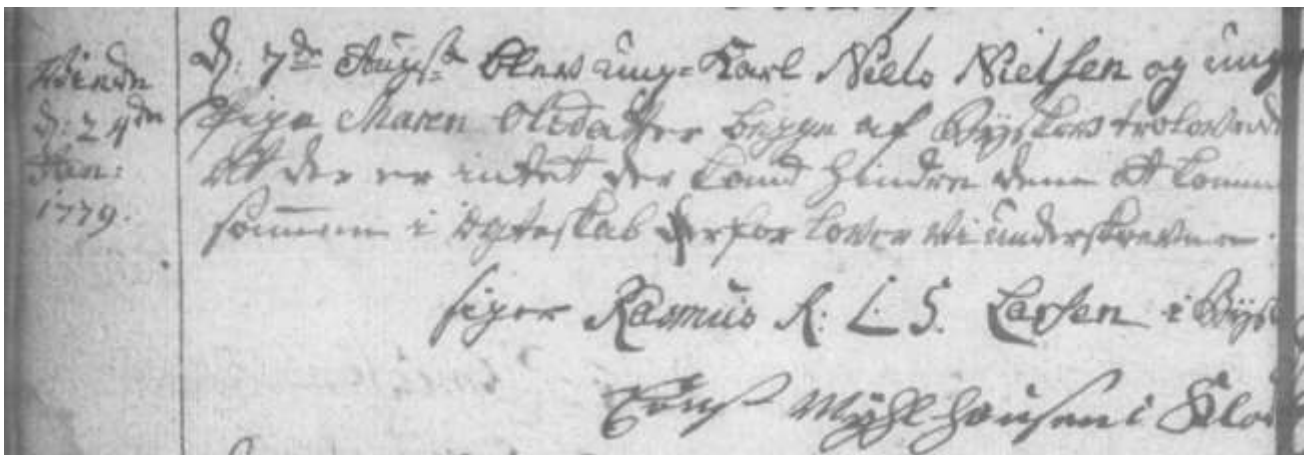 Viede
d: 24de
Jan:
1779.
d: 7de Augst blev ung-Karl Niels Nielsen og ung
Pige Maren Olsdatter begge af Bÿskov trolovede
At der er intet der kand hindre dem at komme
sammen i Ægteskab derfor lover vi underskrevne.
siger Rasmus R: L: S. Larsen i Bÿs
Mÿhlhausen i Klo